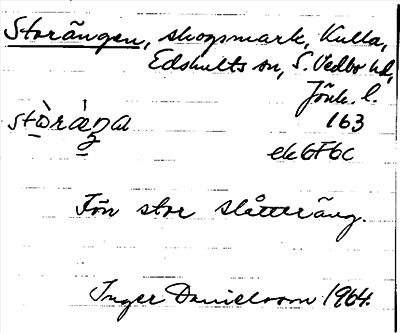 Storängen, skogsmark, Kulla,
Edshults sn, S. Vedbo hd,
Jönk. l.
163
ek6F6c
Förr stor slåtteräng.
Inger Danielsson 1964.